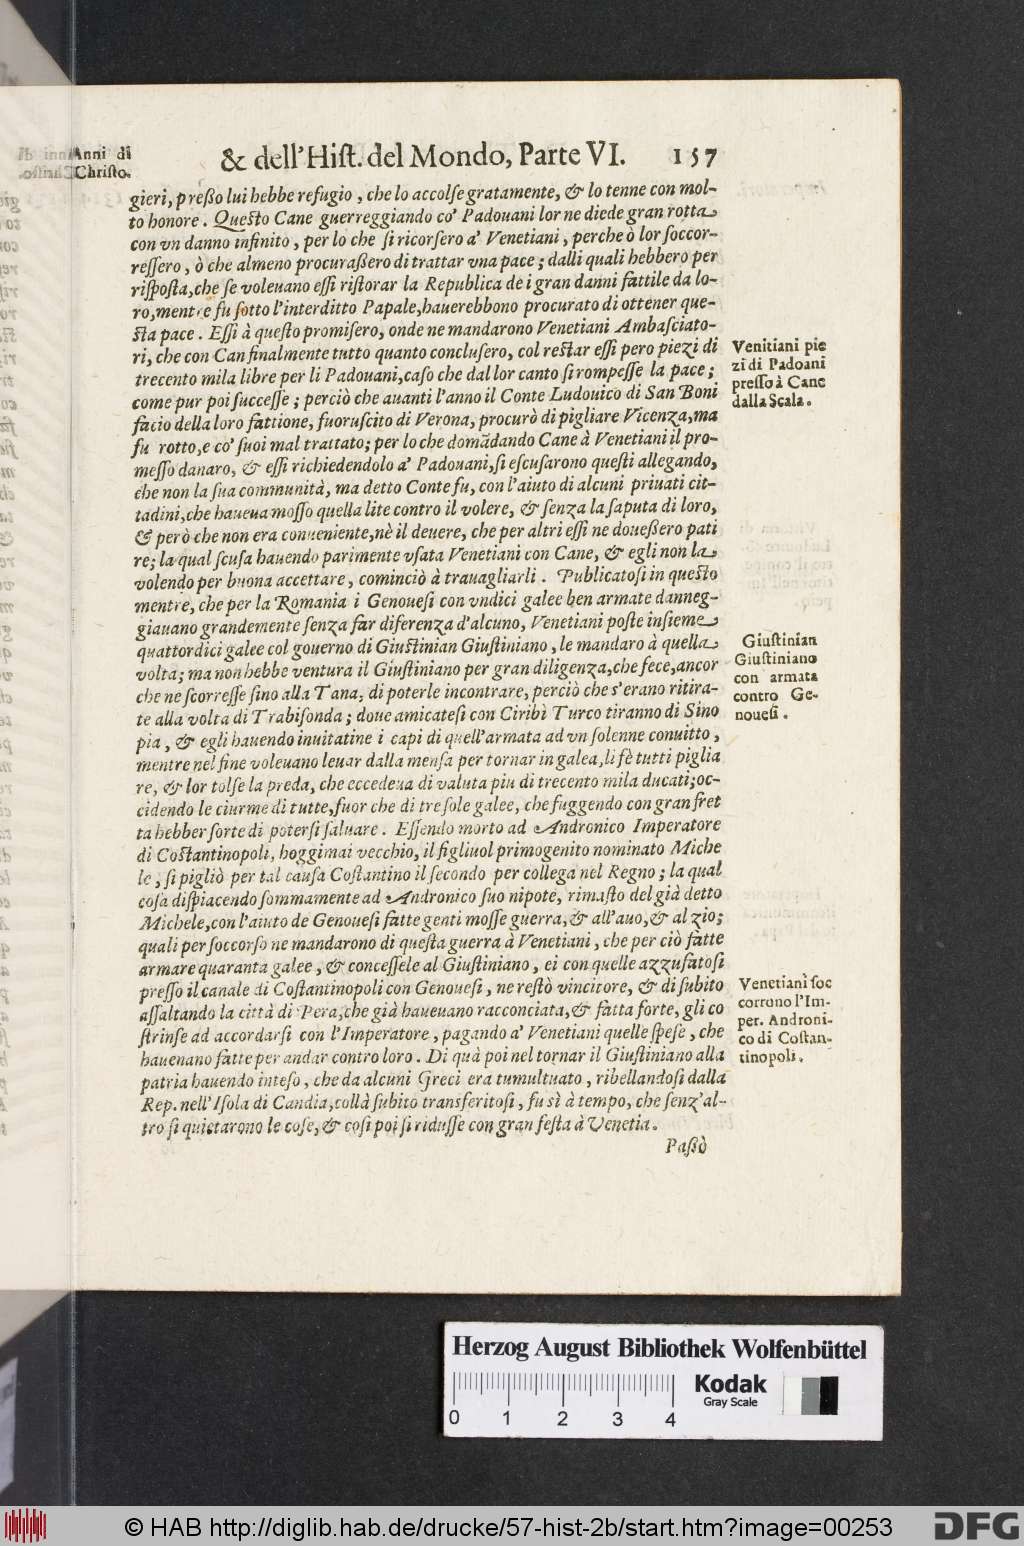 Anni di
Christo.
& dell'Hist. del Mondo, Parte VI. 157
gieri, presso lui hebbe refugio, che lo accolse gratamente, & lo tenne con mol-
to honore. Questo Cane guerreggiando co' Padouani lor ne diede gran rotta
con vn danno infinito, per lo che si ricorsero a' Venetiani, perche ò lor soccor-
ressero, ò che almeno procurassero di trattar vna pace; dalli quali hebbero per
risposta, che se voleuano essi ristorar la Republica de i gran danni fattile da lo-
ro, mentre fu sotto l'interditto Papale, hauerebbono procurato di ottener que-
sta pace. Essi à questo promisero, onde ne mandarono Venetiani Ambasciato-
ri, che con Can finalmente tutto quanto conclusero, col restar essi pero piezi di
trecento mila libre per li Padouani, caso che dal lor canto si rompesse la pace;
come pur poi successe; perciò che auanti l'anno il Conte Ludouico di San Boni
facio della loro fattione, fuoruscito di Verona, procurò di pigliare Vicenza, ma
fu rotto, e co' suoi mal trattato; per lo che domãdando Cane à Venetiani il pro-
messo danaro, & essi richiedendolo a' Padouani, si escusarono questi allegando,
che non la sua communità, ma detto Conte fu, con l'aiuto di alcuni priuati cit-
tadini, che haueua mosso quella lite contro il volere, & senza la saputa di loro,
& però che non era conueniente, nè il deuere, che per altri essi ne douessero pati
re; la qual scusa hauendo parimente vsata Venetiani con Cane, & egli non la
volendo per buona accettare, cominciò à trauagliarli. Publicatosi in questo
mentre, che per la Romania i Genouesi con vndici galee ben armate danneg-
giauano grandemente senza far diferenza d'alcuno, Venetiani poste insieme
quattordici galee col gouerno di Giustinian Giustiniano, le mandarò à quella
volta; ma non hebbe ventura il Giustiniano per gran diligenza, che fece, ancor
che ne scorresse sino alla Tana, di poterle incontrare, perciò che s'erano ritira-
te alla volta di Trabisonda; doue amicatesi con Ciribì Turco tiranno di Sino
pia, & egli hauendo inuitatine i capi di quell'armata ad vn solenne conuitto,
mentre nel fine voleuano leuar dalla mensa per tornar in galea, li fè tutti piglia
re, & lor tolse la preda, che eccedeua di valuta piu di trecento mila ducati; oc-
cidendo le ciurme di tutte, fuor che di tre sole galee, che fuggendo con gran fret
ta hebber sorte di potersi saluare. Essendo morto ad Andronico Imperatore
di Costantinopoli, hoggimai vecchio, il figliuol primogenito nominato Miche
le, si pigliò per tal causa Costantino il secondo per collega nel Regno; la qual
cosa dispiacendo sommamente ad Andronico suo nipote, rimasto del già detto
Michele, con l'aiuto de Genouesi fatte genti mosse guerra, & all'auo, & al zio;
quali per soccorso ne mandarono di questa guerra à Venetiani, che per ciò fatte
armare quaranta galee, & concessele al Giustiniano, ei con quelle azzufatosi
presso il canale di Costantinopoli con Genouesi, ne restò vincitore, & di subito
assaltando la città di Pera, che già haueuano racconciata, & fatta forte, gli co
strinse ad accordarsi con l'Imperatore, pagando a' Venetiani quelle spese, che
haueuano fatte per andar contro loro. Di quà poi nel tornar il Giustiniano alla
patria hauendo inteso, che da alcuni Greci era tumultuato, ribellandosi dalla
Rep. nell'Isola di Candia, collà subito transferitosi, fu sì à tempo, che senz'al-
tro si quietarono le cose, & così poi si ridusse con gran festa à Venetia.
Passò
Venitiani pie
zi di Padoani
presso à Cane
dalla Scala.
Giustinian
Giustiniano
con armata
contro Ge-
nouesi.
Venetiani soc
corrono l'Im-
per. Androni-
co di Costan-
tinopoli.
Herzog August Bibliothek Wolfenbüttel
0 1 2 3 4
Kodak
Gray Scale
© HAB http://diglib.hab.de/drucke/57-hist-2b/start.htm?image=00253
DFG